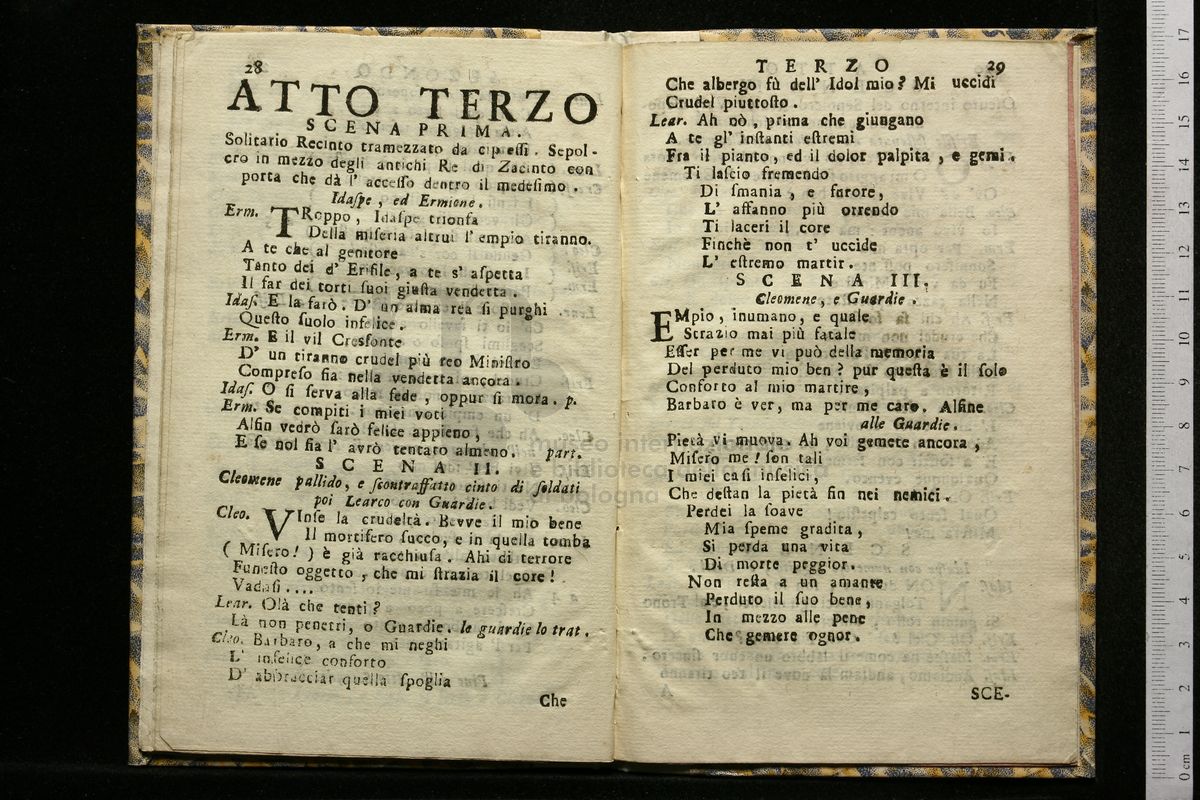 28
ATTO TERZO
SCENA PRIMA.
Solitario Recinto tramezzato da cipreſſi. Sepol-
cro in mezzo degli antichi Re di Zacinto con
porta che dà l' acceſſo dentro il medeſimo.
Idaſpe, ed Ermione.
Erm. TRoppo, Idaſpe trionfa
Della miſeria altrui l' empio tiranno.
A te che al genitore
Tanto dei d' Erifile, a te s' aſpetta
Il far dei torti ſuoi giuſta vendetta.
Idaſ. E la farò. D' un alma rea ſi purghi
Queſto ſuolo infelice.
Erm. E il vil Cresfonte
D' un tiranno crudel più reo Miniſtro
Compreſo ſia nella vendetta ancora.
Idaſ. O ſi ſerva alla fede, oppur ſi mora. p.
Erm. Se compiti i miei voti
Alfin vedrò ſarò felice appieno,
E ſe nol fia l' avrò tentato almeno. part.
SCENA II.
Cleomene pallido, e ſcontraffatto cinto di ſoldati
poi Learco con Guardie.
Cleo. VInſe la crudeltà. Bevve il mio bene
Il mortifero ſucco, e in quella tomba
( Miſero! ) è già racchiuſa. Ahi di terrore
Funeſto oggetto, che mi ſtrazia il core!
Vadaſi....
Lear. Olà che tenti?
Là non penetri, o Guardie. le guardie lo trat.
Cleo. Barbaro, a che mi neghi
L' infelice conforto
D' abbracciar quella ſpoglia
Che
TERZO 29
Che albergo fù dell' Idol mio? Mi uccidi
Crudel piuttoſto.
Lear. Ah nò, prima che giungano
A te gl' inſtanti eſtremi
Fra il pianto, ed il dolor palpita, e gemi.
Ti laſcio fremendo
Di ſmania, e furore,
L' affanno più orrendo
Ti laceri il core
Finchè non t' uccide
L' eſtremo martir.
SCENA III.
Cleomene, e Guardie.
EMpio, inumano, e quale
Strazio mai più fatale
Eſſer per me vi può della memoria
Del perduto mio ben? pur queſta è il ſolo
Conforto al mio martire,
Barbaro è ver, ma per me caro. Alfine
alle Guardie.
Pietà vi muova. Ah voi gemete ancora,
Miſero me! ſon tali
I miei caſi infelici,
Che deſtan la pietà fin nei nemici.
Perdei la ſoave
Mia ſpeme gradita,
Si perda una vita
Di morte peggior.
Non reſta a un amante
Perduto il ſuo bene,
In mezzo alle pene
Che gemere ognor.
SCE-